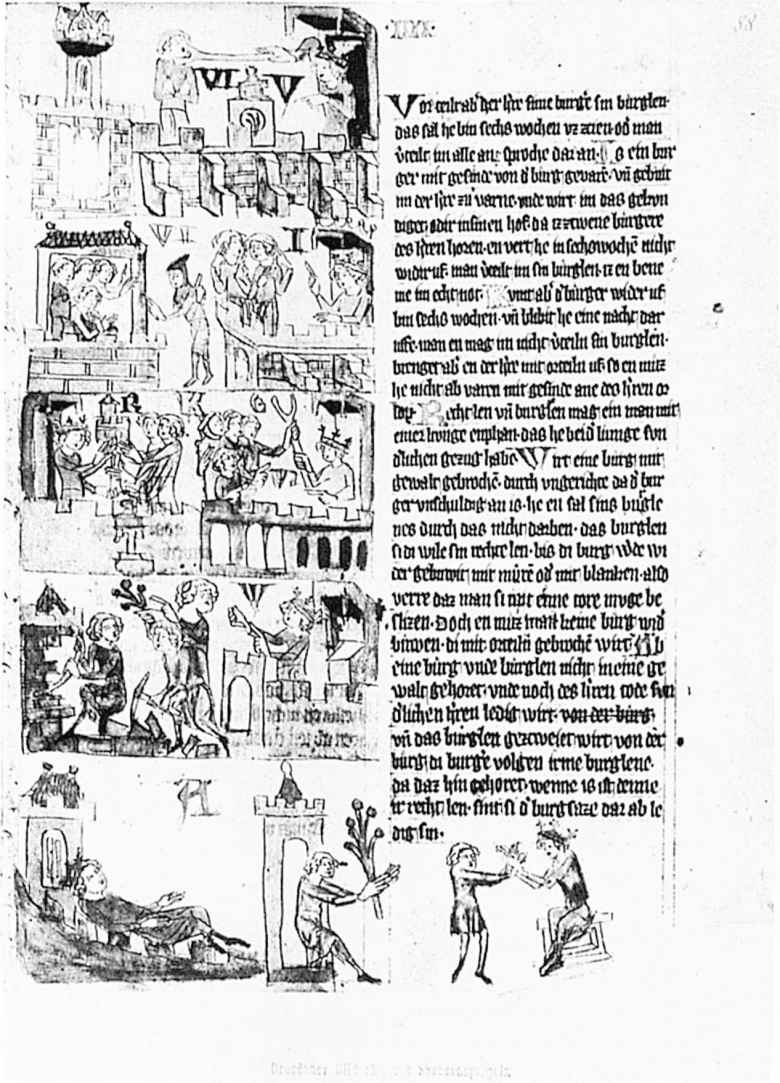 Vor teilt ab' der h're sime burg'e sin burglen·
das sal he bin sechs wochen vz zcien· od' man
v'teilt im alle an sproche dar an· Is ein bur
ger mit gesinde von d' burg gevarn· vn̄ gebuit
im der h're zu varne· vnde wirt im das gebon
diget· odir in sinen hof· da iz zcwene burgere
des h'ren horen· en vert he in sechswochē nicht
widir uf· man v'teilt im sin burglen· iz en bene
me im echt not· vmt ab' d' burger wider uf
bin sechs wochen· vn̄ blibit he eine nacht dar
uffe· man en mag im nicht v'teiln sin burglen·
brenget ab' en der h're mit orteiln uf· so en muz
he nicht ab varen mit gesinde ane des h'ren or
lop· Recht len vn̄ burglen mag ein man mit
einer
gezug habe· Wirt eine burg mit
gewalt gebrochē· durch vngerichte da d' bur
ger vnschuldig an is· he en sal sins burgle
nes durch das nicht darben· das burglen
si di wile sin rechte len· bis di burg w'de wi
der gebuwit mit mur̄e od' mit blanken· also
verre daz man si mit eime tore muge be
slizen· Doch en muz man keine burg wid'
buwen· di mit orteiln gebrochē wirt· Ab
eine burg vnde burglen nicht in eine ge
walt gehoret· vnde noch des h'ren tode sun
d'lichen h'ren ledig wirt· von der burg·
vn̄ das burglen gezcweiet wirt von der
burg· di burg'e volgen irme burglene·
da daz hin gehoret· wenne is ist denne
ir recht len· sint si d' burgsaze dar ab le
dig sin·